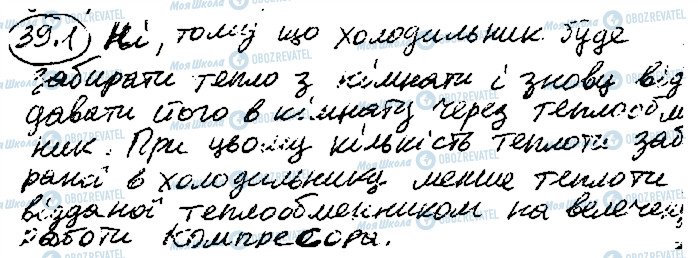 39.1 Ні, тому що холодильник буде
забирати тепло з кімнати і знову від
давати його в кімнату через теплообм
ник. При цьому кількість теплоти заб
раної в холодильнику менше теплоти
відданої теплообменником на велечену
работи компресоры.